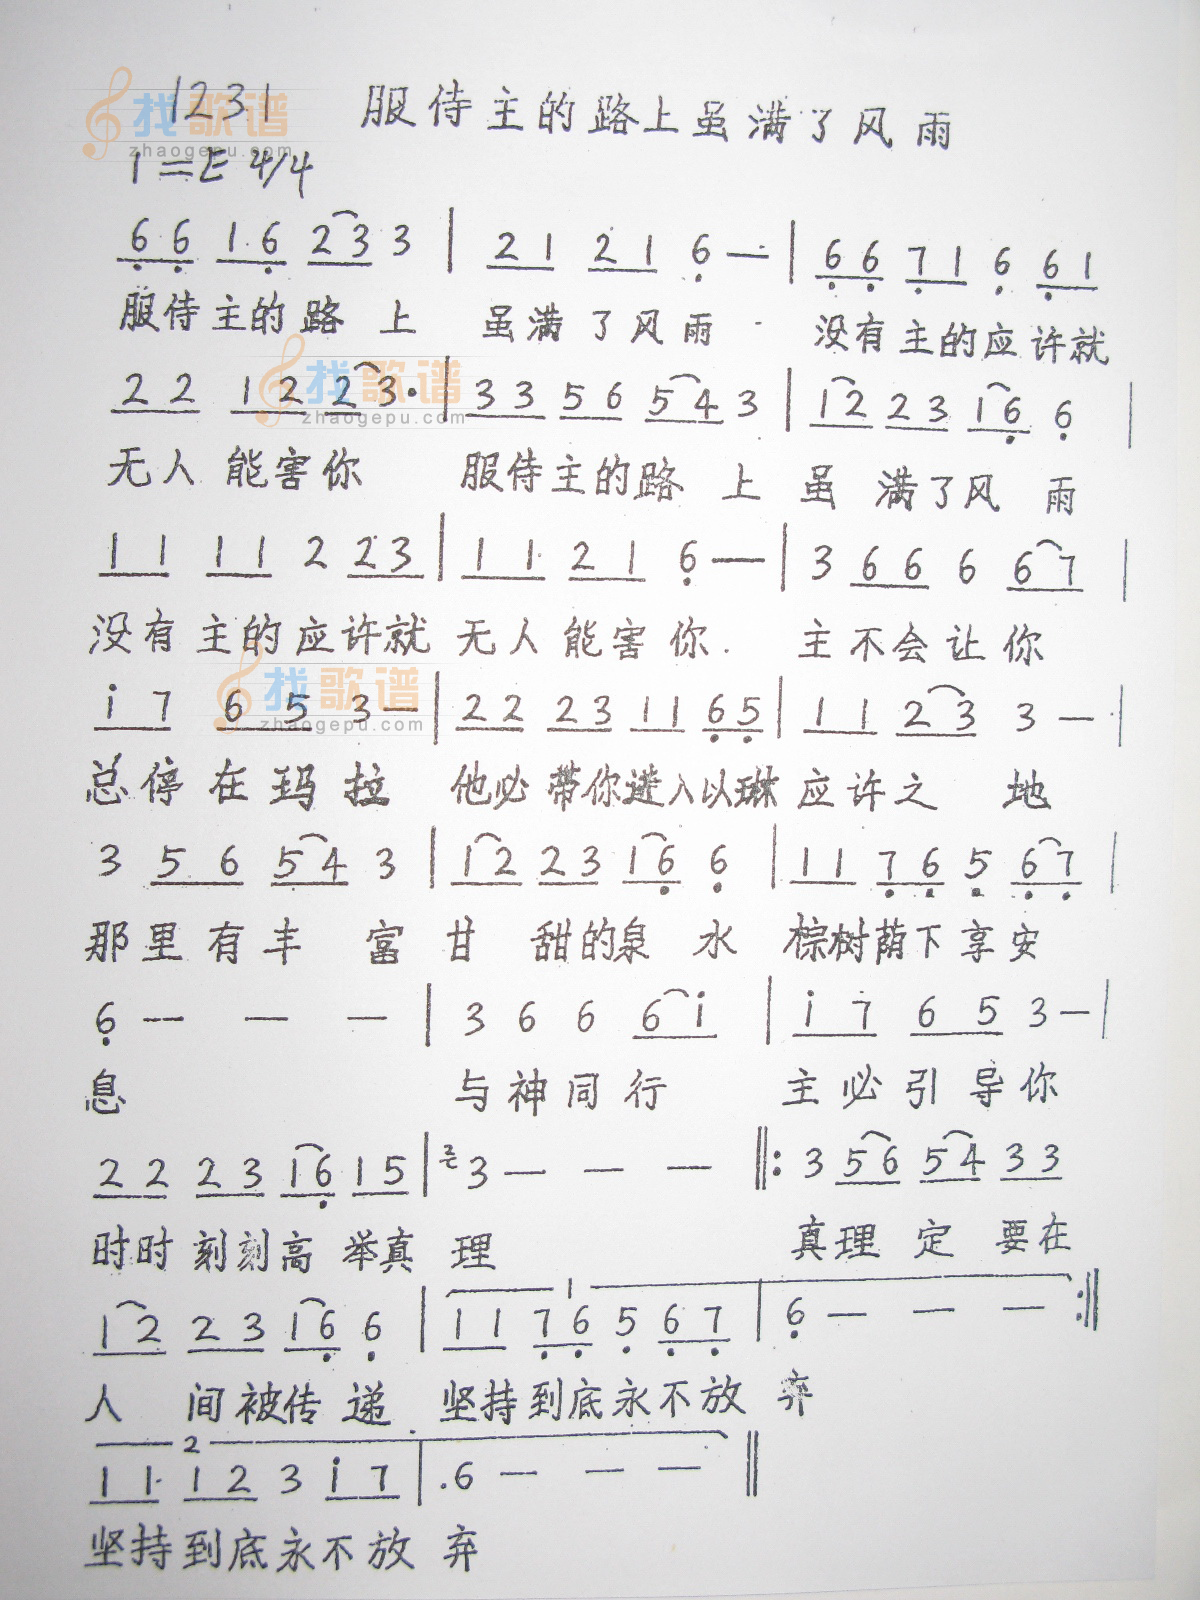 1231 服侍主的路上虽满了风雨
找歌谱
zhaogepu.com
1=E 4/4
6 6 1 6 2 3 3 | 2 1 2 1 6 — | 6 6 7 1 6 6 1
服侍主的路上 虽满了风雨 没有主的应许就
2 2 1 2 2 3· | 3 3 5 6 5 4 3 | 1 2 2 3 1 6 6 |
找歌谱
zhaogepu.com
无人能害你 服侍主的路上虽满了风雨
1 1 1 1 2 2 3 | 1 1 2 1 6 — | 3 6 6 6 6 7 |
没有主的应许就 无人能害你. 主不会让你
找歌谱
zhaogepu.com
i 7 6 5 3 — | 2 2 2 3 1 1 6 5 | 1 1 2 3 3 — |
总停在玛拉 他必带你进入以琳 应许之地
3 5 6 5 4 3 | 1 2 2 3 1 6 6 | 1 1 7 6 5 6 7 |
那里有丰富 甘甜的泉水 棕树荫下享安
6 — — — | 3 6 6 6 i | i 7 6 5 3 — |
息 与神同行 主必引导你
2 2 2 3 1 6 1 5 | 3 — — — ‖: 3 5 6 5 4 3 3
时时刻刻高举真理 真理定要在
1
1 2 2 3 1 6 6 | 1 1 7 6 5 6 7 | 6 — — — :‖
人间被传递 坚持到底永不放弃
2
1 1 1 2 3 i 7 | .6 — — — ‖
坚持到底永不放弃